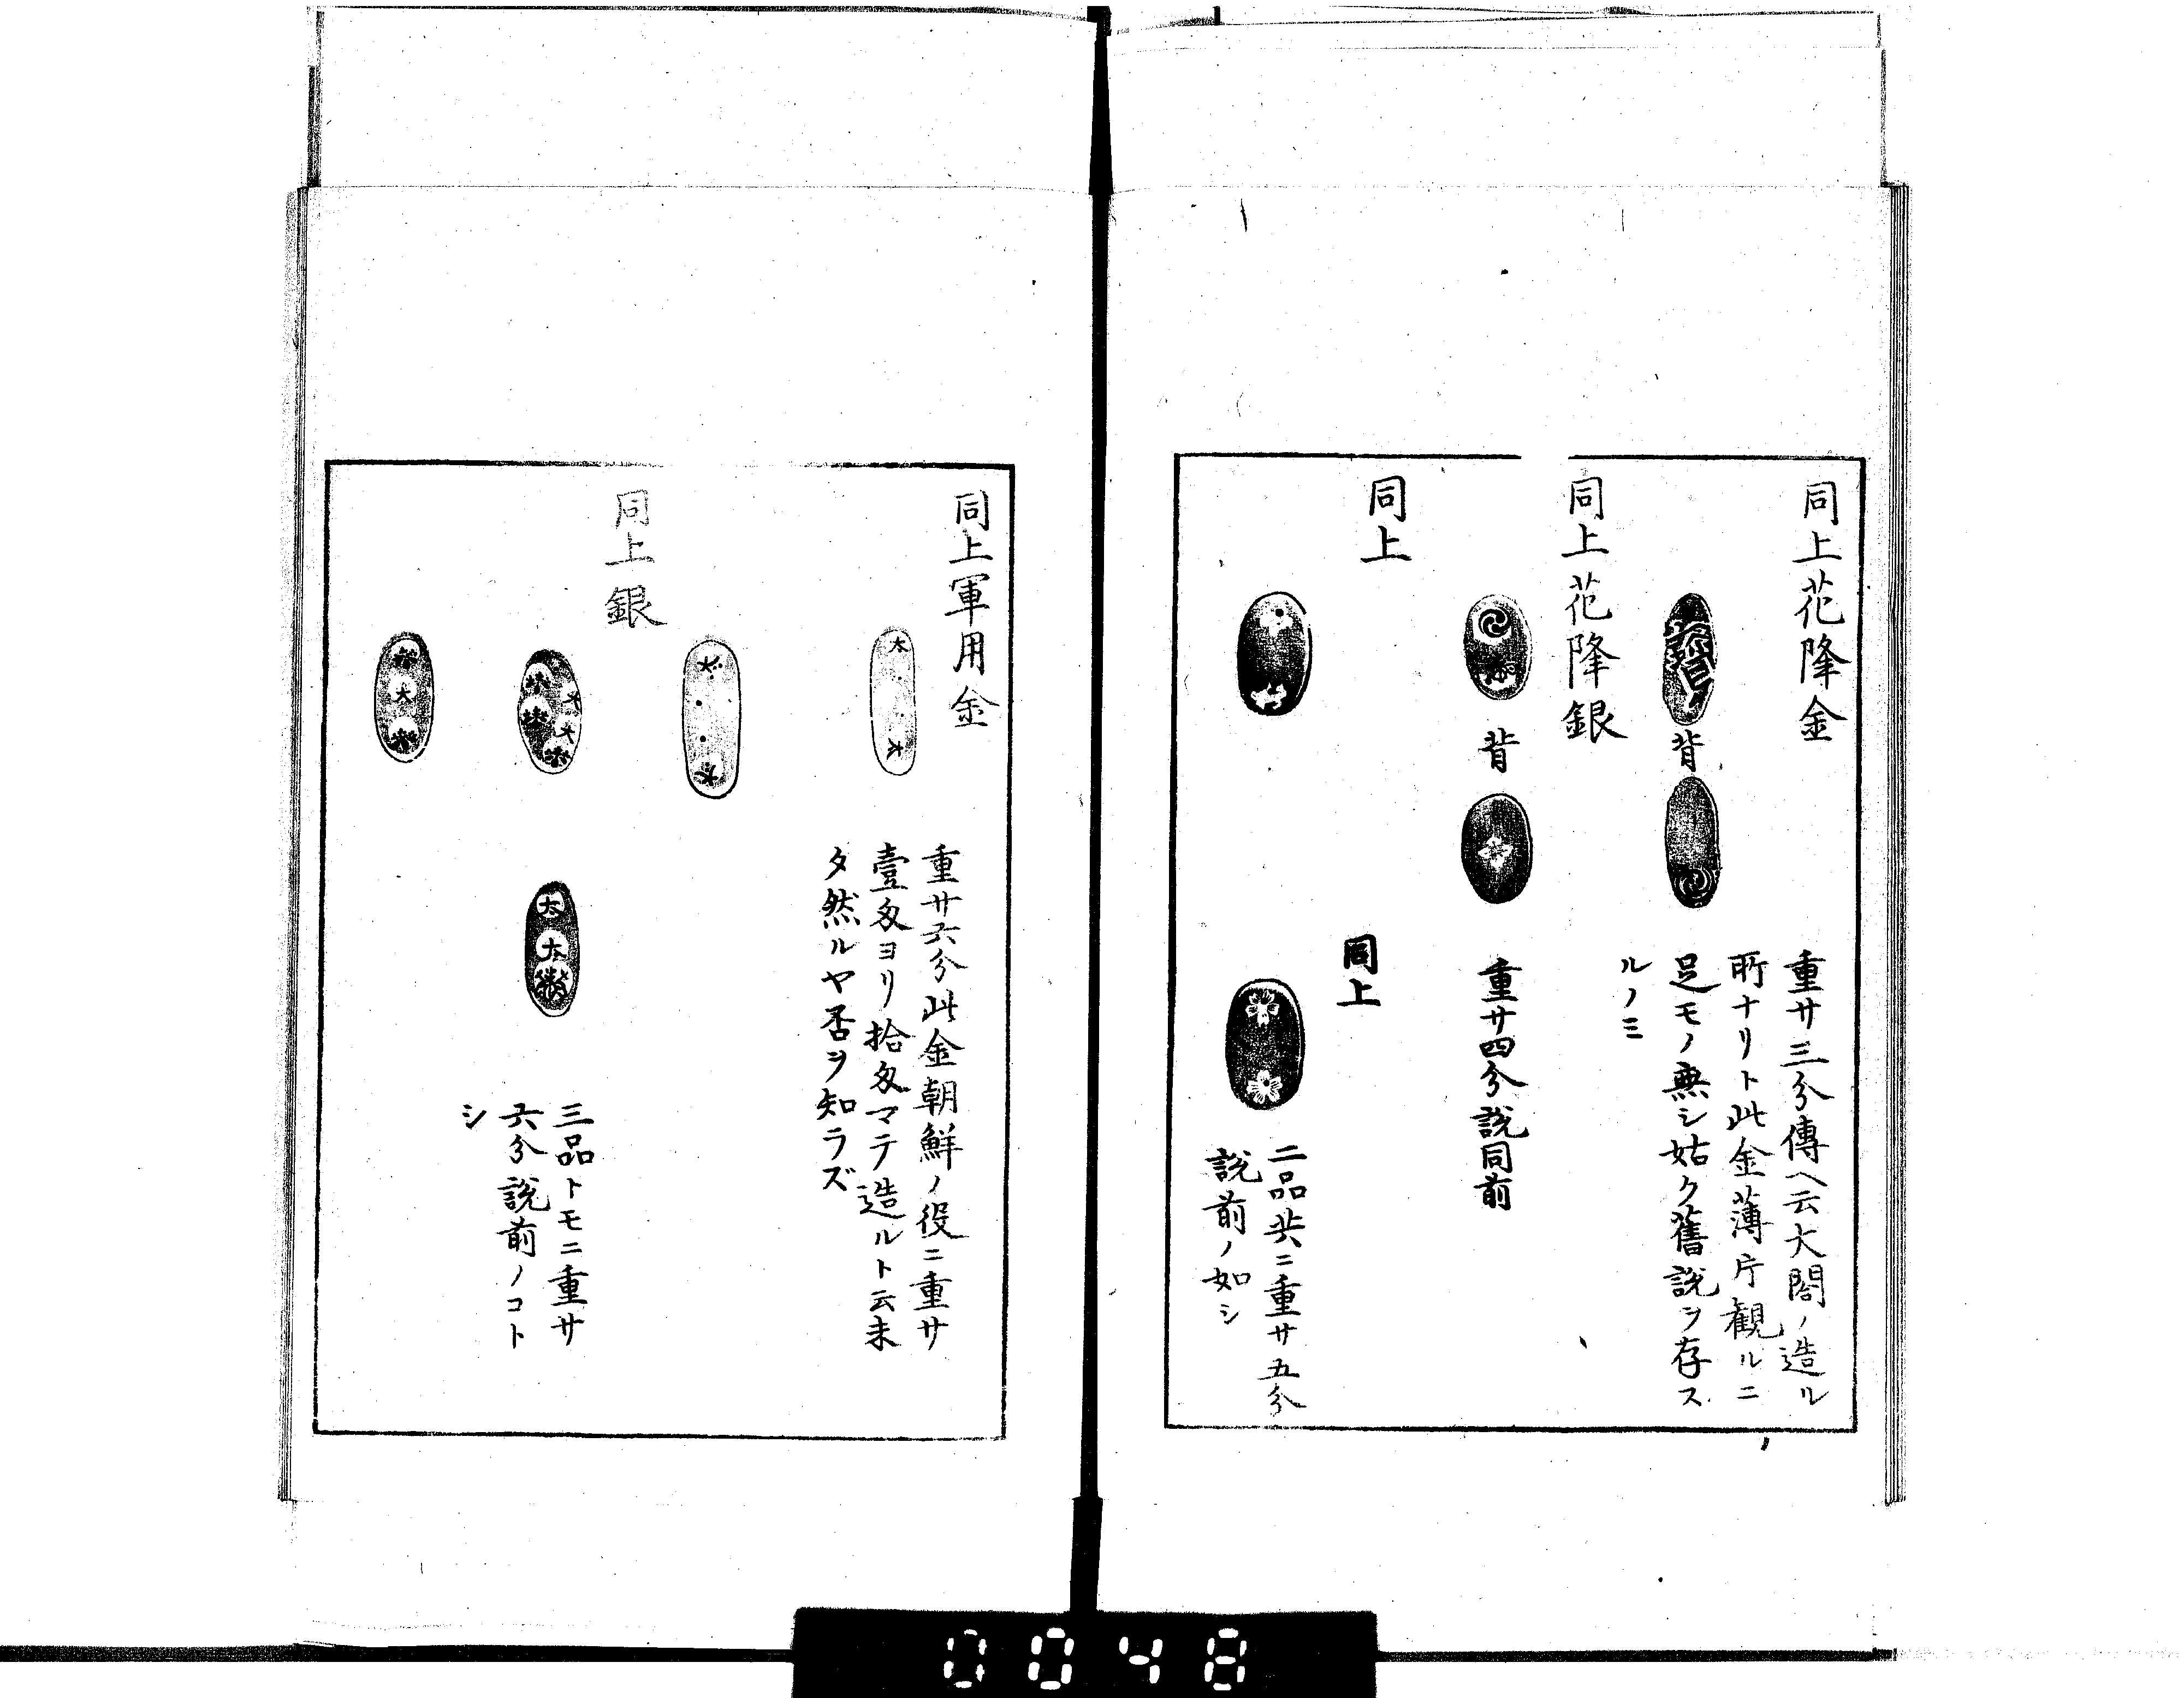 同上花降金
背
重サ三分傳ヘ云大閤ノ造ル
所ナリト此金薄片観ルニ
足モノ無シ姑ク舊説ヲ存ス
ルノミ
同上花降銀
背
重サ四分説同前
同上
同上
二品共ニ重サ五分
説前ノ如シ
同上軍用金
大
大
重サ六分此金朝鮮ノ役ニ重サ
壹匁ヨリ拾匁マテ造ルト云未
タ然ルヤ否ヲ知ラズ
同上銀
大
大
大
大
大
三品トモニ重サ
六分説前ノコト
シ
0048